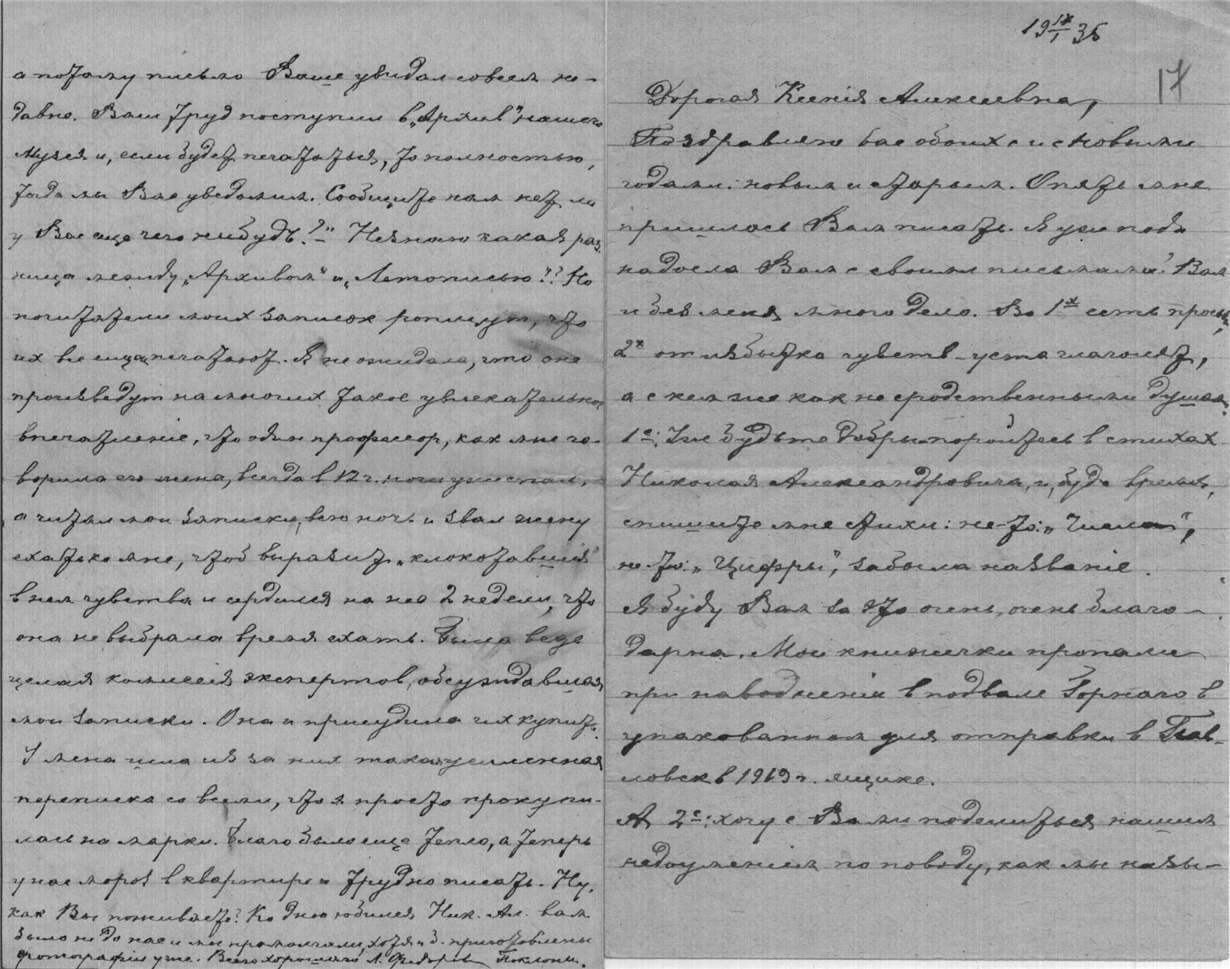 а потому письмо Ваше увидал совсем не-
давно. Ваш труд поступил в „Архив" нашего
музея и, если будет печататься, то полностью,
тогда мы Вас уведомим. Сообщите нам нет ли
у Вас еще чего нибудь?" Не знаю какая раз
ница между „Архивом" и „Летописью"!? Но
почитатели моих записок ропщут, что
их не печатают. Я не ожидала, что оне
произведут на многих такое увлекательное
впечатленіе, что один профессор, как мне го-
ворила его жена, всегда в 12 ч. ночи уже спал,
а читал мои записки всю ночь и звал жену
ехать ко мне, чтоб выразить „клокотавшія"
в нем чувства и сердился на нее 2 недели, что
она не выбрала время ехать. Была ведь
целая комиссія экспертов, обсуждавшая
мои записки. Она и присудила их купить.
У меня шла из за них такая усиленная
переписка со всеми, что я просто прокути-
лась на марки. Благо было еще тепло, а теперь
у нас мороз в квартире и трудно писать. Ну,
как Вы поживаете? Ко дню юбилея Ник. Ал. вам
было не до нас и мы промолчали, хотя и б. приготовлены
фотографіи уже. Всего хорошаго Л. Федоров Поклоны.
19 IX/I 35
17
Дорогая Ксенія Алексеевна,
Поздравляю вас обоих с новыми
годами: новым и старым. Опять мне
пришлось Вам писать. Я уж поди
надоела Вам с своими письмами! Вам
и без меня много дела. Во 1х есть просьба,
2х от избытка чувств - уста глаголят,
а с кем же как не сродственными душам.
1е: Уж будьте добры поройтесь в стихах
Николая Александровича, и, буде время,
спишите мне стихи: не то: „Числа",
не то: „Цифры", забыла названіе.
Я буду Вам за это очень, очень благо-
дарна. Мои книжечки пропали
при наводненіи в подвале Горнаго в
упакованном для отправки в Пав-
ловск в 1919 г. ящике.
А 2е: хочу с Вами поделиться нашим
недоуменіем по поводу, как мы назы-